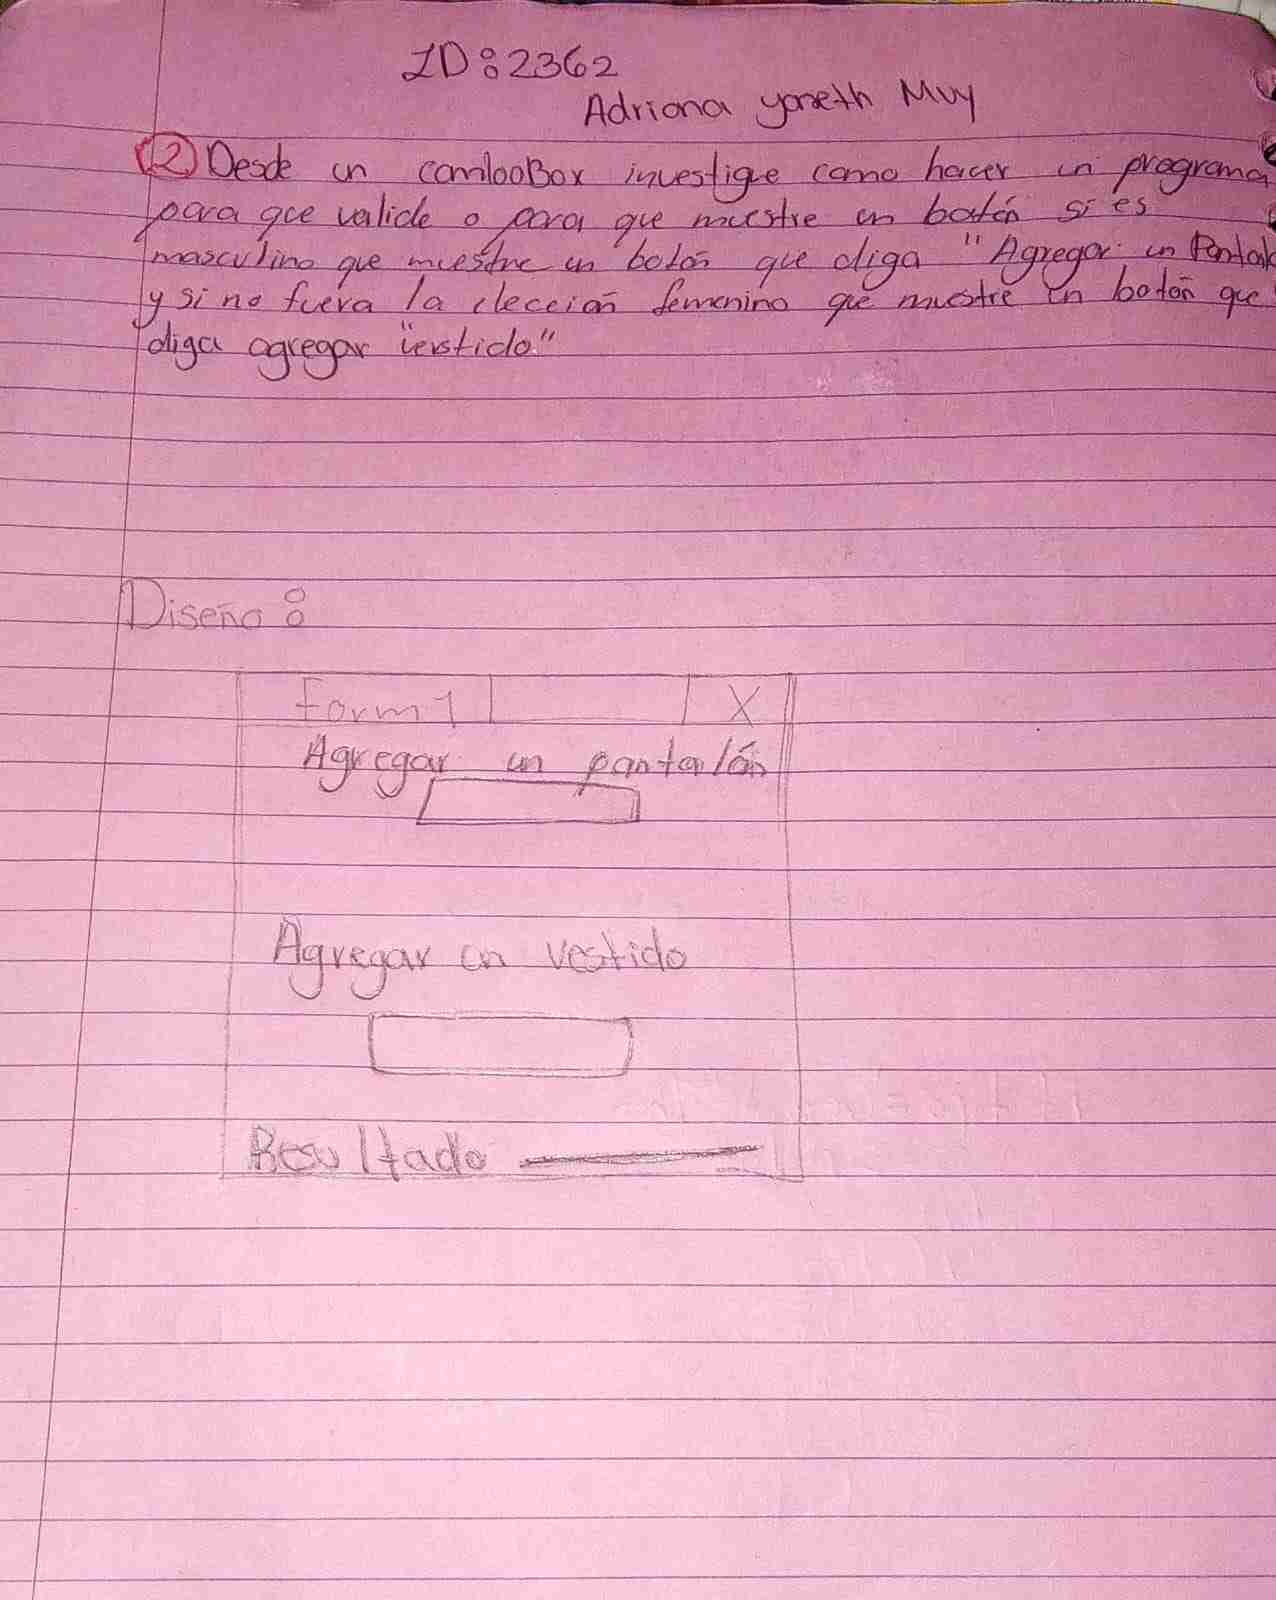 ID:2362
Adriana yoneth Muy
12) Desde un comboBox investigue como hacer un programa
para que valide o para que muestre un botón si es
masculino que muestre un botón que diga "Agregar un Pantal
y si no fuera la elección femenino que muestre un botón que
diga agregar "verstido"
Diseño:
Form1 X
Agregar un pantalón
Agregar un vestido
Resultado